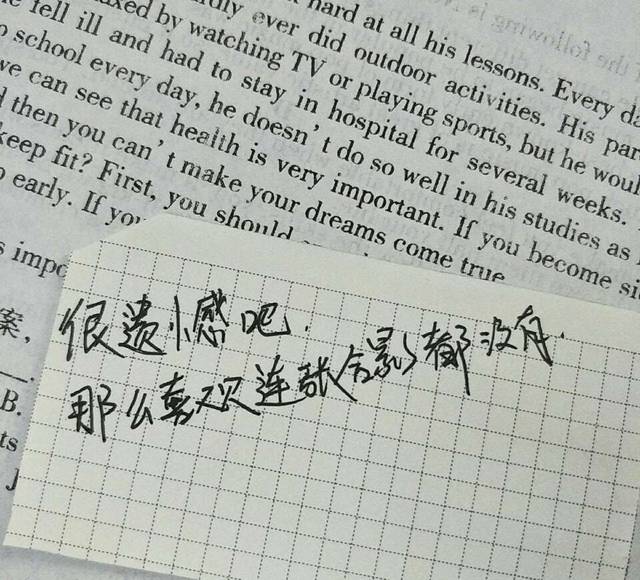 hard at all his lessons. Every da
dly ever did outdoor activities. His par
axed by watching TV or playing sports, but he woul
e fell ill and had to stay in hospital for several weeks.
o school every day, he doesn't do so well in his studies as
we can see that health is very important. If you become si
d then you can't make your dreams come true
keep fit? First, you should
o early. If you
s impo
案,
B.
ts
J
很遗憾吧.
那么喜欢连张合影都没有.